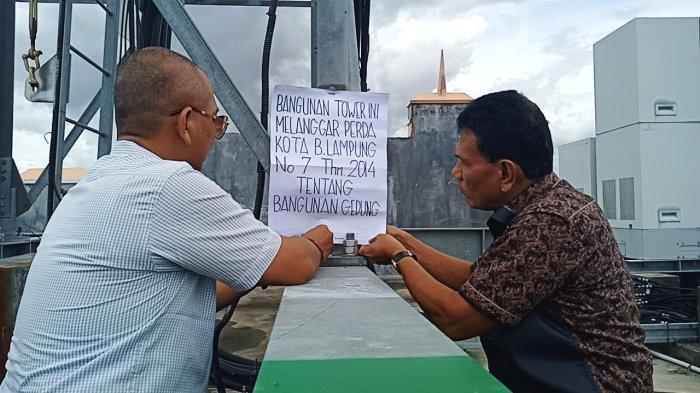 BANGUNAN TOWER INI
MELANGGAR PERDA
KOTA B.LAMPUNG
No 7 Thn 2014
TENTANG
BANGUNAN GEDUNG